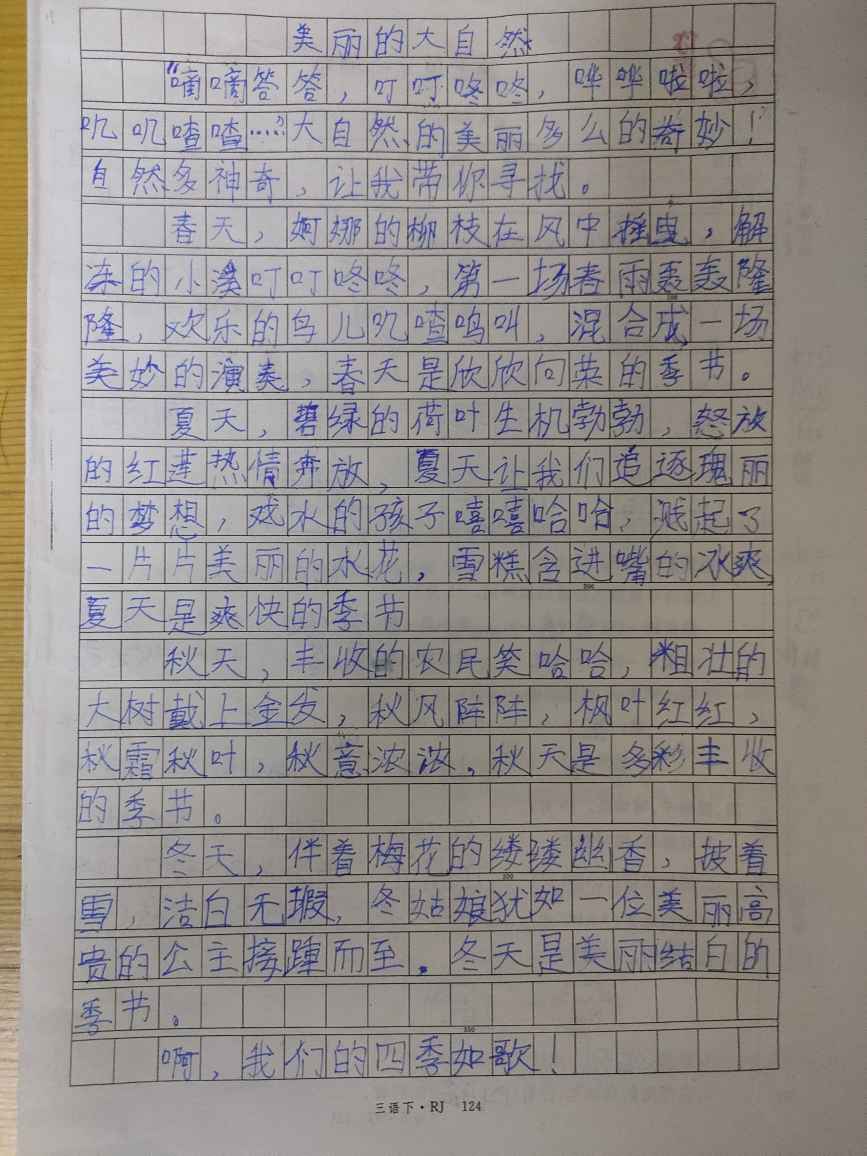 美丽的大自然
“嘀嘀答答，叮叮咚咚，哗哗啦啦，
叽叽喳喳……”大自然的美丽多么的奇妙！
自然多神奇，让我带你寻找。
春天，婀娜的柳枝在风中摇曳，解
冻的小溪叮叮咚咚，第一场春雨轰轰隆
隆，欢乐的鸟儿叽喳鸣叫，混合成一场
美妙的演奏，春天是欣欣向荣的季节。
夏天，碧绿的荷叶生机勃勃，怒放
的红莲热情奔放，夏天让我们追逐瑰丽
的梦想，戏水的孩子嘻嘻哈哈，溅起了
一片片美丽的水花，雪糕含进嘴的冰爽，
夏天是爽快的季节
秋天，丰收的农民笑哈哈，粗壮的
大树戴上金发，秋风阵阵，枫叶红红，
秋霜秋叶，秋意浓浓，秋天是多彩丰收
的季节。
冬天，伴着梅花的缕缕幽香，披着
雪，洁白无瑕，冬姑娘犹如一位美丽高
贵的公主接踵而至。冬天是美丽结白的
季节。
啊，我们的四季如歌！
三语下·RJ 124